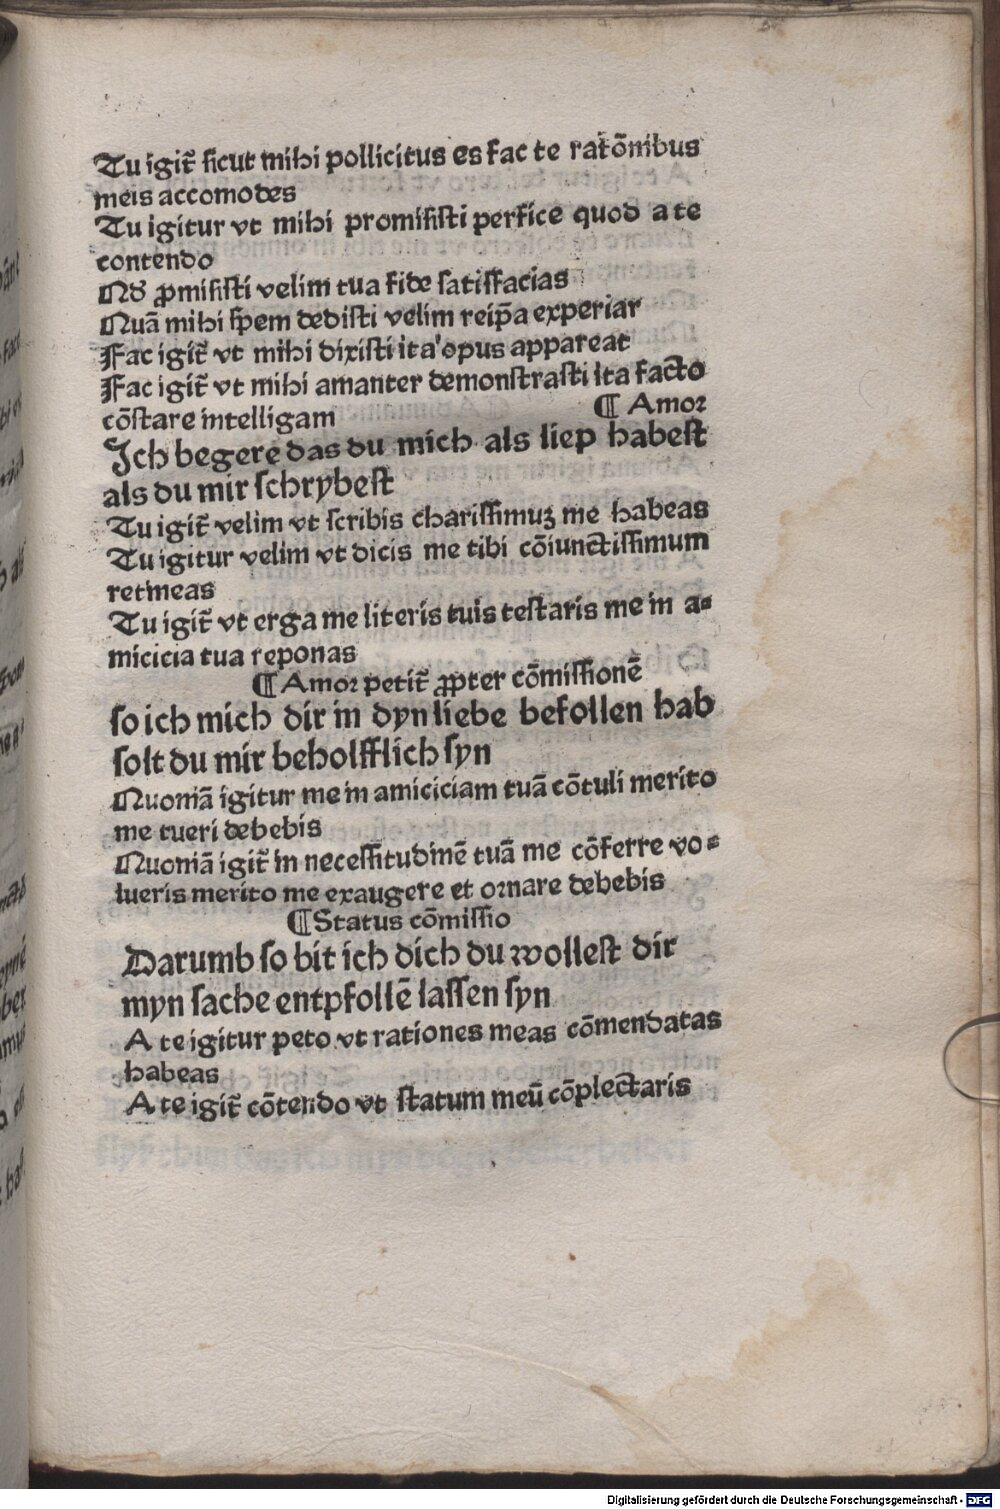 Tu igit̃ sicut mihi pollicitus es fac te ratōnibus
meis accomodes
Tu igitur vt mihi promisisti perfice quod a te
contendo
Qd ꝓmisisti velim tua fide satisfacias
Quā mihi spem dedisti velim reip̄a experiar
Fac igit̃ vt mihi dixisti ita opus appareat
Fac igit̃ vt mihi amanter demonstrasti ita facto
cōstare intelligam ¶ Amor
Ich begere das du mich als liep habest
als du mir schrybest
Tu igit̃ velim vt scribis charissimuȝ me habeas
Tu igitur velim vt dicis me tibi cōiunctissimum
retineas
Tu igit̃ vt erga me literis tuis testaris me in a⸗
micicia tua reponas
¶ Amor petit̃ ꝓpter cōmissionē
so ich mich dir in dyn liebe befollen hab
solt du mir beholfflich syn
Quoniā igitur me in amiciciam tuā cōtuli merito
me tueri debebis
Quoniā igit̃ in necessitudinē tuā me cōferre vo⸗
lueris merito me exaugere et ornare debebis
¶ Status cōmissio
Darumb so bit ich dich du wollest dir
myn sache entpfollē lassen syn
A te igitur peto vt rationes meas cōmendatas
habeas
A te igit̃ cōtendo vt statum meū cōplectaris
Digitalisierung gefördert durch die Deutsche Forschungsgemeinschaft - DFG